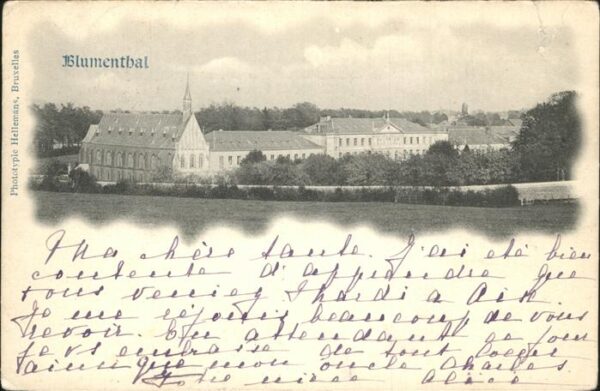 Blumenthal
Phototypie Hellemans, Bruxelles
Ma chère tante. J'ai été bien
contente d'apprendre que
vous veniez Mardi à Aix
Je me réjouis beaucoup de vous
revoir. En attendant ce jour
je vs embrasse de tout coeur
ainsi que mon oncle Charles
Votre nièce Alice